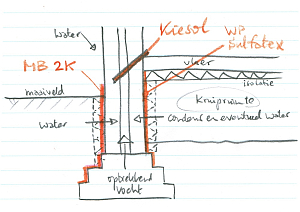 water
Kiesol
WP
Sulfatex
MB 2K
vloer
isolatie
maaiveld
Kruipruimte
water
condens en eventueel water
optrekkend
vocht